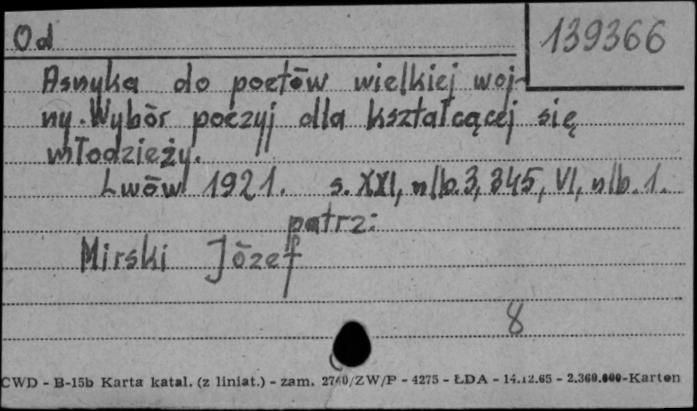 Od
139366
Asnyka do poetów wielkiej woj-
ny. Wybór poezyj dla kształcącej się
młodzieży.
Lwów 1921. s. XXI, nlb. 3, 345, VI, nlb. 1.
patrz:
Mirski Józef
8
CWD - B-15b Karta katal. (z liniat.) - zam. 2740/ZW/P - 4275 - ŁDA - 14.12.65 - 2.360.000-Karten